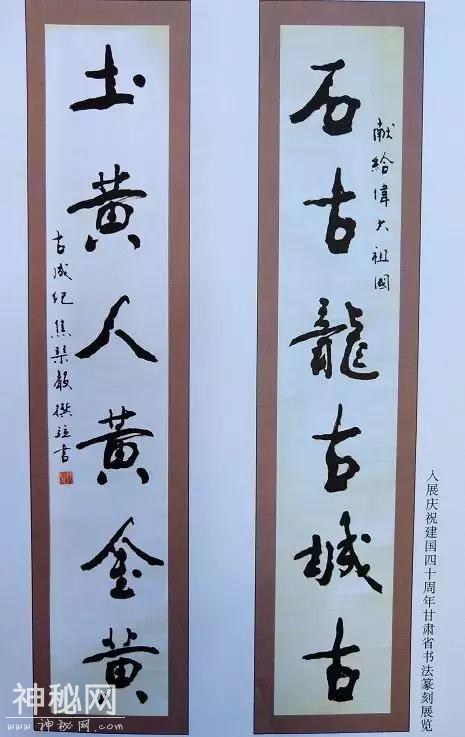 石古龍古城古
献給偉大祖國
土黄人黄金黄
古成纪焦撰書
入展庆祝建国四十周年甘肃省书法篆刻展览
神秘网
www.神秘网.com